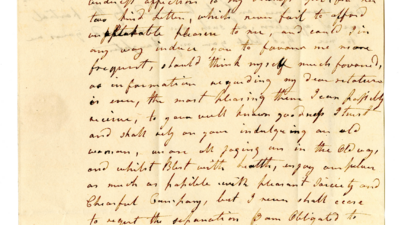 kindness affection to my
two kind letters, which never fail to afford
unspeakable pleasure to me, and could I in
any way induce you to favour me more
frequent, should think myself much favoured,
as information regarding my dear relatives
is ever, the most pleasing theme I can possibly
receive, to your well known goodness I trust
and shall rely on your indulging an old
woman, we are all jogging on in the Old way,
and whilst Blest with health, enjoy ourselves
as much as possible with pleasant Society and
Chearful Company, but I never shall cease
to regret the separation I am Obligated to